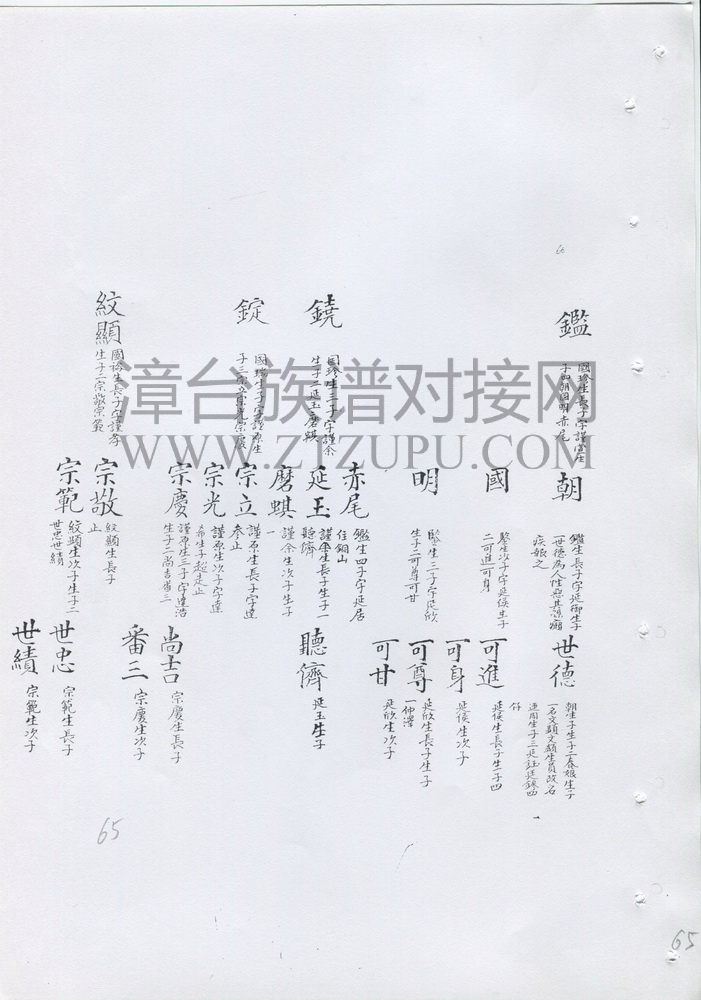 鑑
國珍生長子字謹
子四朝國明赤尾
鐃
國珍生三子字謹余
生子二延玉磨蜞
錠
國瑞生子字謹原生
子三宗立宗光宗慶
紋顯
生長子字謹孝
生子二宗敬宗範
漳台族谱对接网
WWW.ZTZUPU.COM
朝
鑑生長子字延御生子
一世德為人性
國
鑒生次子字延侯生子
二可進可身
明
鑒生三子字延欣
生子二可尊可甘
赤尾
鑑生四子字延居
住銅山
延玉
謹余生長子生子一
聽儕
磨蜞
謹余生次子生子
一
宗立
謹原生長子字達
参止
宗光
謹原生次子字達
希生子超走止
宗慶
謹原生三子字達浩
生子二尚吉番三
宗敬
紋顯生長子
止
宗範
紋顯生次子生子二
世忠世績
世德
朝生子生子二春娘生子
一名文顯文顯生員改名
運用生子三
可進
延侯生長子生子四
什
可身
延侯生次子
可尊
延欣生長子生子
一仲澤
可甘
延欣生次子
聽儕
延玉生子
尚吉
宗慶生長子
番三
宗慶生次子
世忠
宗範生長子
世績
宗範生次子
65
65